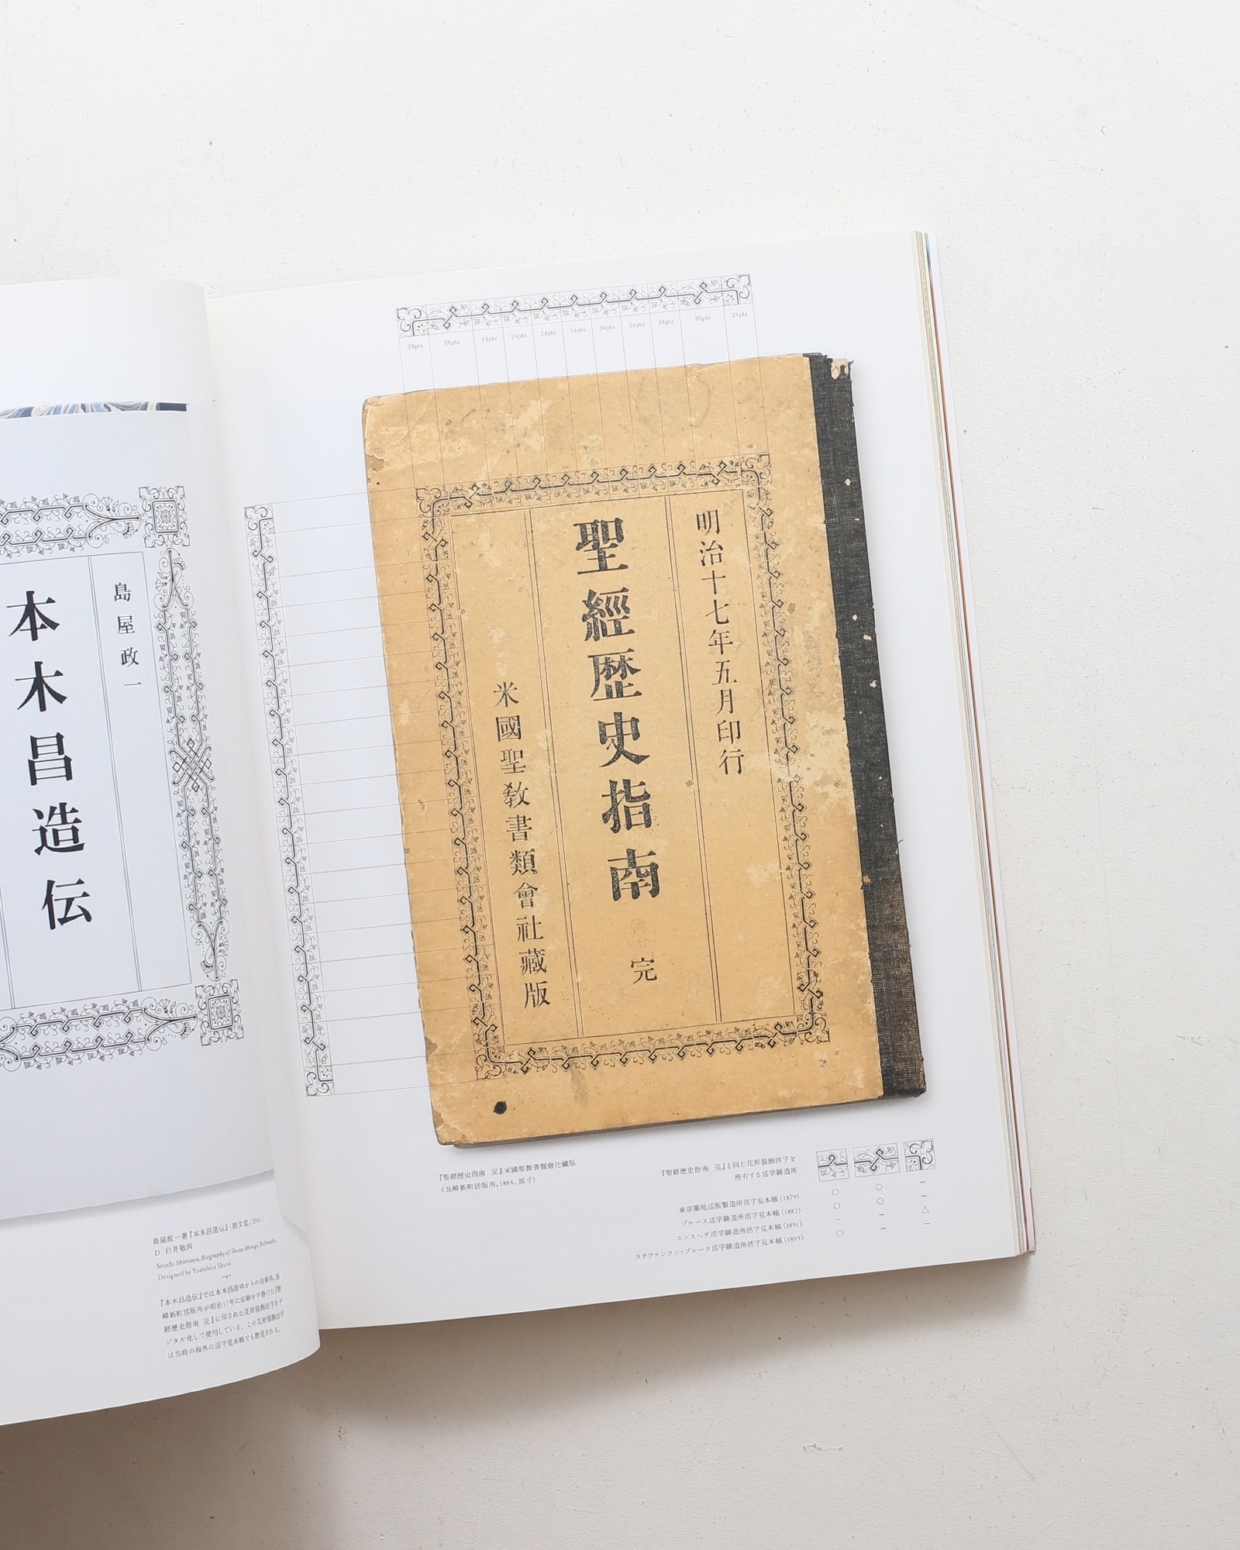 島屋政一
本木昌造伝
島屋政一著『本木昌造伝』(朗文堂, 2001)
D: 白井敬尚
Seiichi Shimaya, Biography of Shozo Motogi, Robundo,
Designed by Yoshihisa Shirai
『本木昌造伝』では本木昌造ゆかりの活版所、長
崎新町活版所が明治17年に印刷を手掛けた『聖
經歴史指南 完』に印された花形装飾活字をデ
ジタル化して使用している。この花形装飾活字
は当時の海外の活字見本帳でも散見される。
24pts 36pts 24pts 24pts 24pts 24pts 24pts 24pts 24pts 36pts 24pts
明治十七年五月印行
聖經歴史指南 完
米國聖教書類會社藏版
『聖經歴史指南 完』米國聖教書類會社藏版
(長崎新町活版所, 1884, 原寸)
『聖經歴史指南 完』と同じ花形装飾活字を
所有する活字鋳造所
東京築地活版製造所活字見本帳 (1879) ○ ○ −
ブルース活字鋳造所活字見本帳 (1882) ○ ○ △
エンスヘデ活字鋳造所活字見本帳 (1891) − ○ −
ステファンソン・ブレーク活字鋳造所活字見本帳 (1895) ○